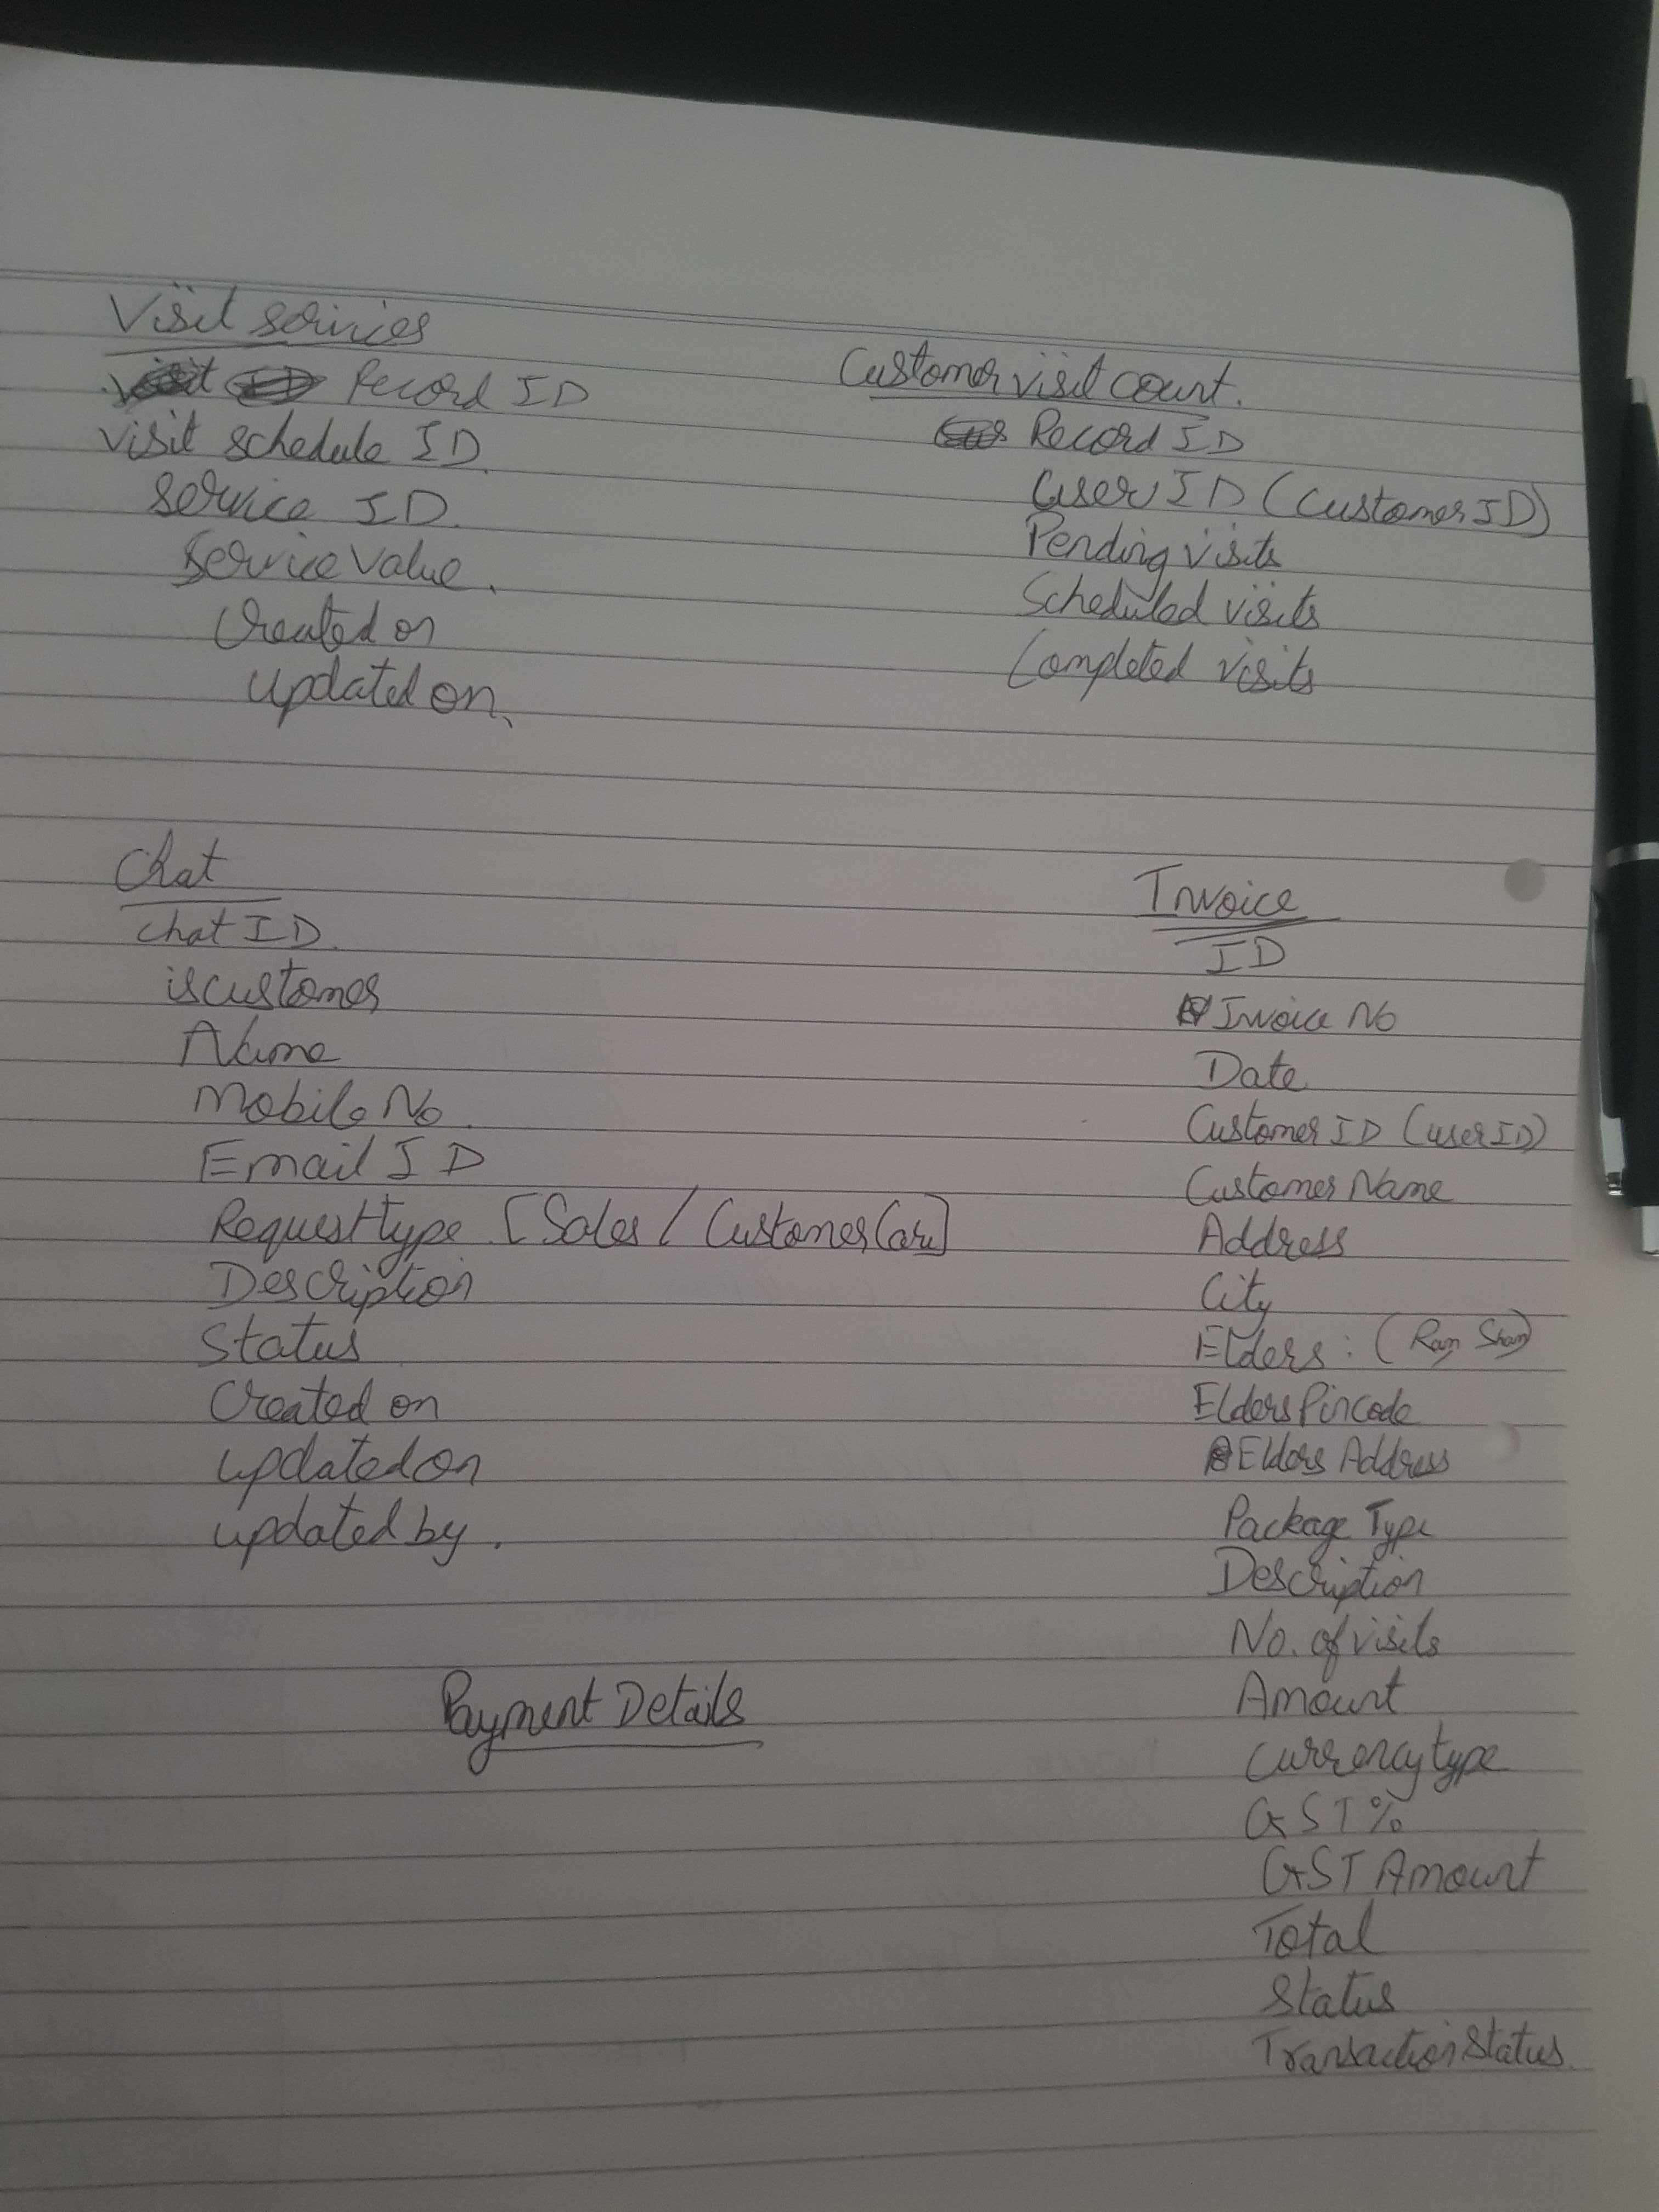 Visit services
Record ID
visit schedule ID.
Service ID.
Service Value.
Created on
updated on.
Customer visit count.
Record ID
User ID (Customer ID)
Pending visits
Scheduled visits
Completed visits
Chat
chat ID.
is customer
Name
Mobile No.
Email ID
Request type [Sales / Customer Care]
Description
Status
Created on
updated on
updated by.
Payment Details
Invoice
ID
Invoice No
Date
Customer ID (user ID)
Customer Name
Address
City
Elders: (Ram Sham)
Elders Pincode
Elders Address
Package Type
Description
No. of visits
Amount
Currency type
GST %
GST Amount
Total
Status
Transaction Status.